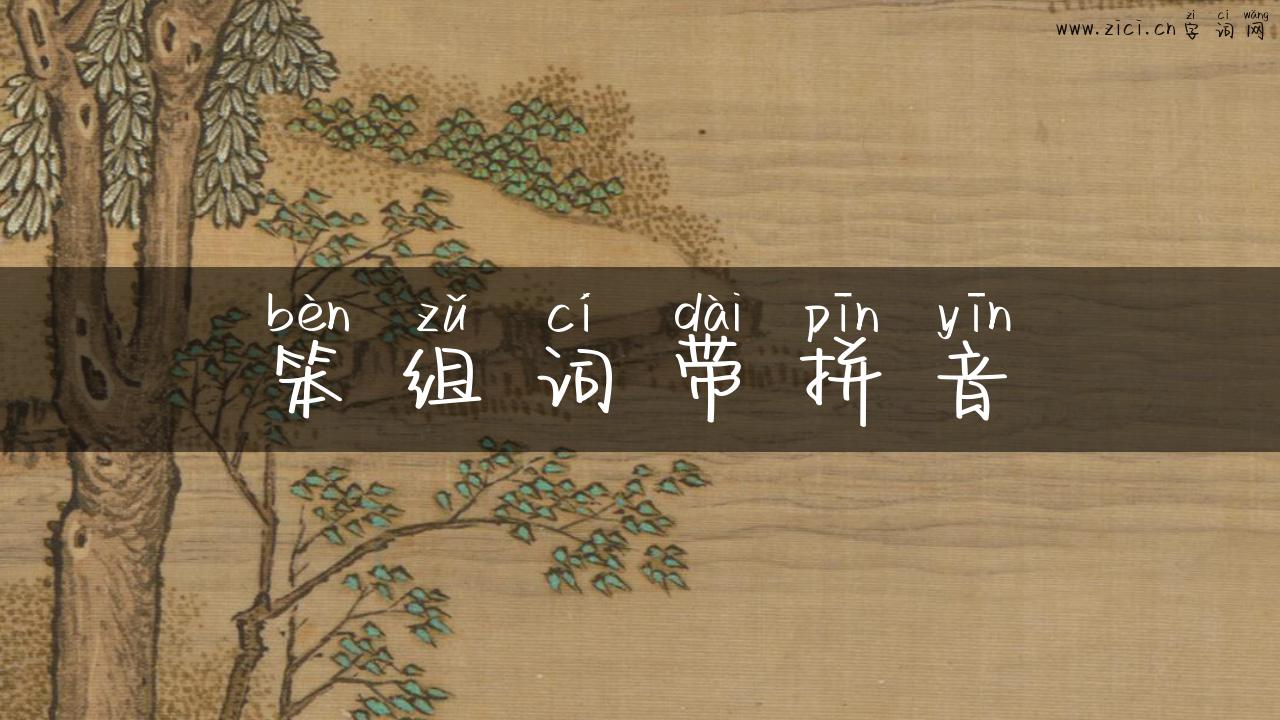 zì cí wǎng
www.zici.cn 字词网
bèn zǔ cí dài pīn yīn
笨组词带拼音